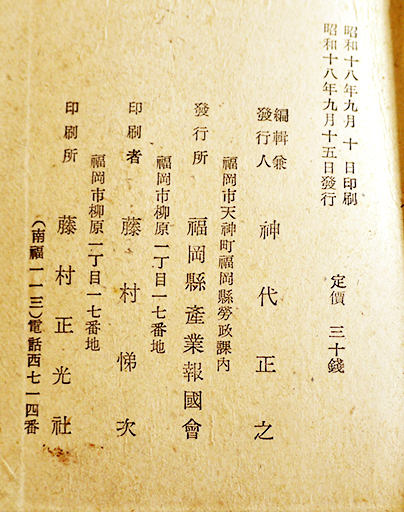 昭和十八年九月 十 日印刷
昭和十八年九月十五日發行
定價 三十錢
編輯兼
發行人 神代正之
福岡市天神町福岡縣勞政課内
發行所 福岡縣產業報國會
福岡市柳原一丁目一七番地
印刷者 藤村悌次
福岡市柳原一丁目一七番地
印刷所 藤村正光社
(南福一一三)電話西七一四番